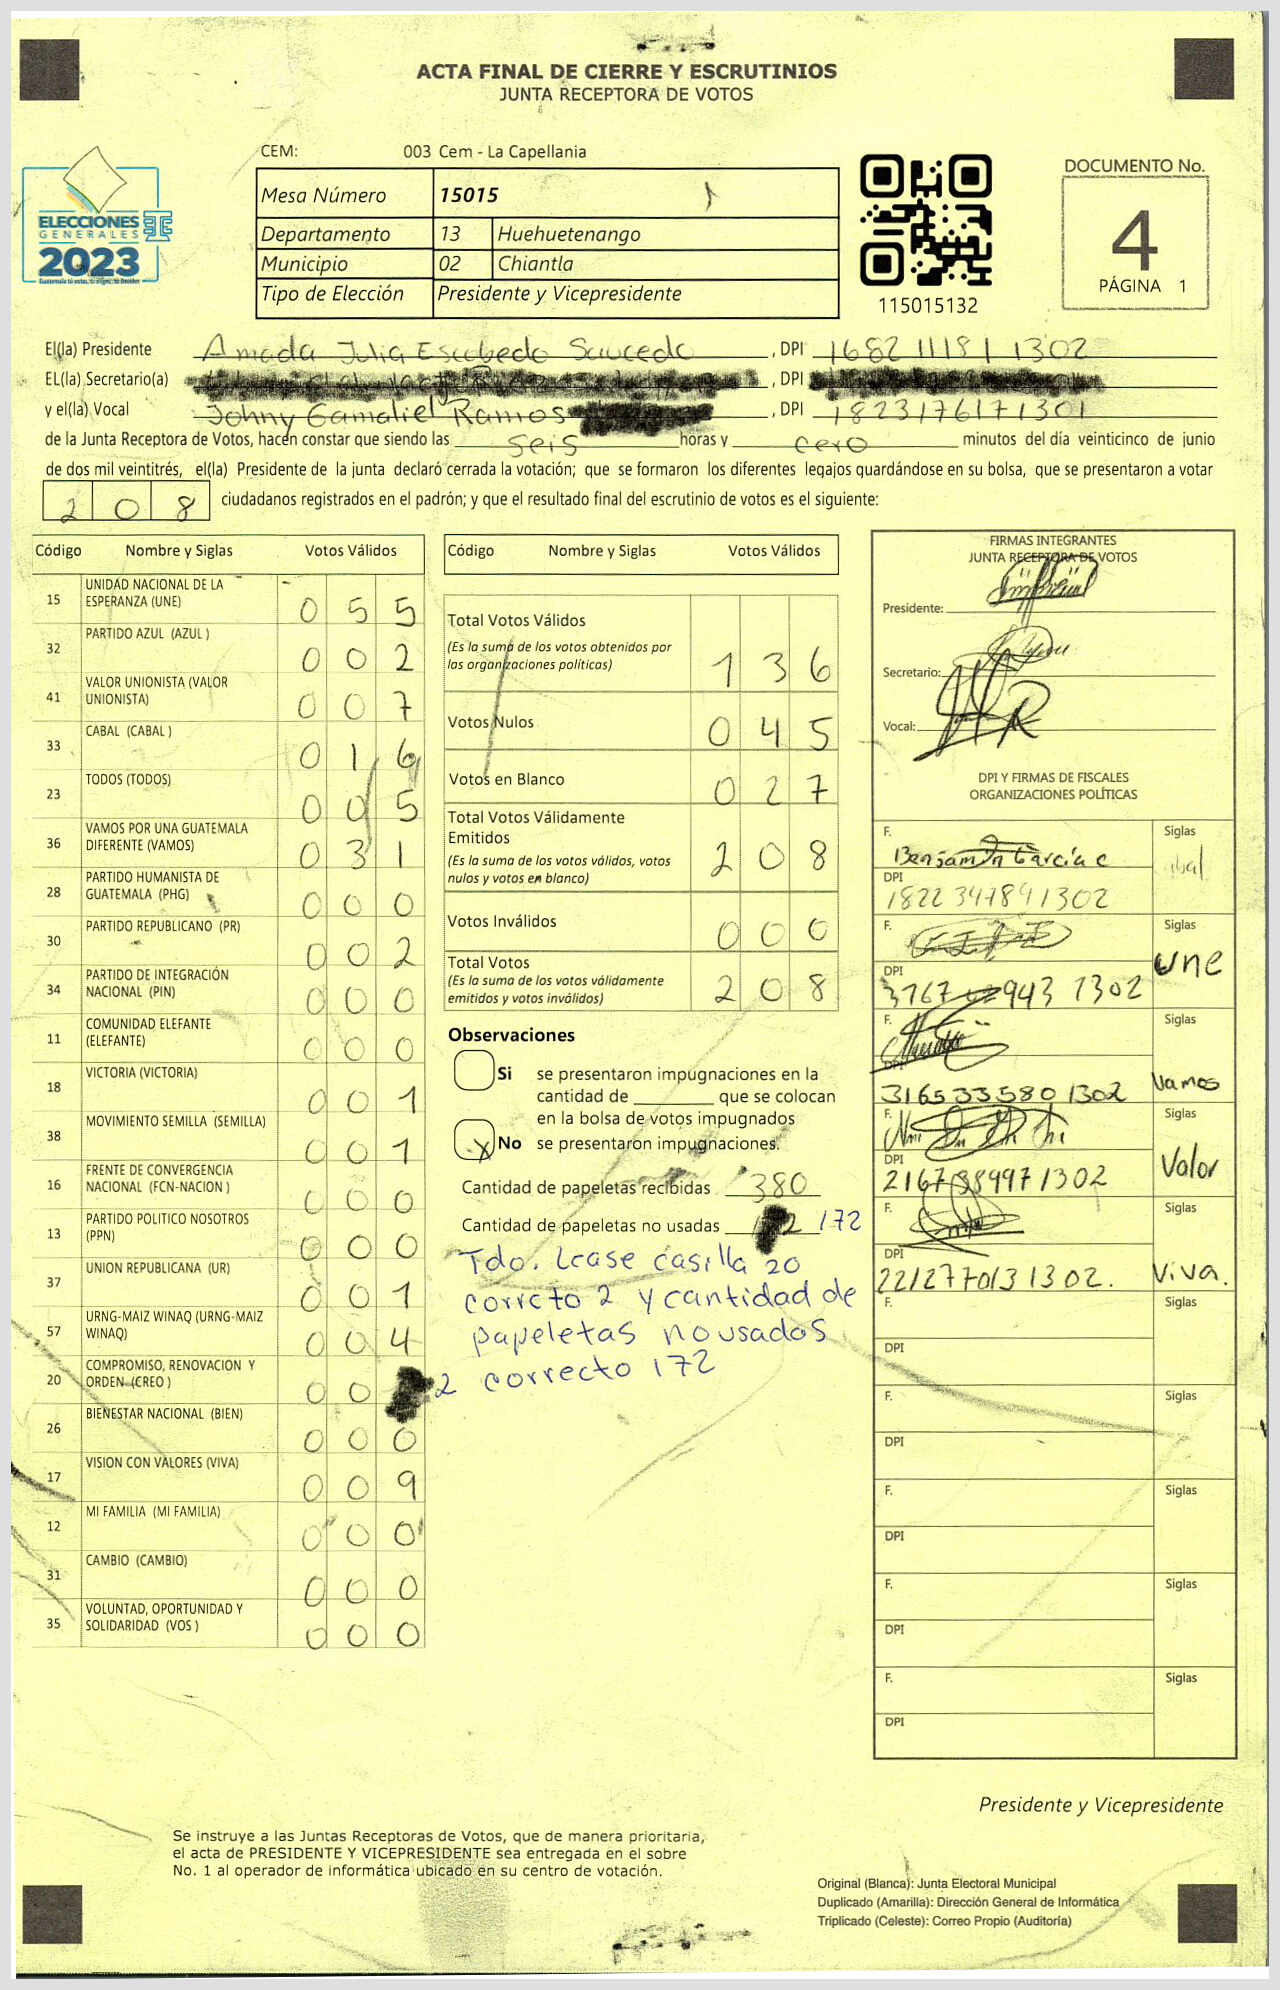 ACTA FINAL DE CIERRE Y ESCRUTINIOS
JUNTA RECEPTORA DE VOTOS
ELECCIONES
GENERALES
2023
CEM: 003 Cem - La Capellania
Mesa Número 15015
Departamento 13 Huehuetenango
Municipio 02 Chiantla
Tipo de Elección Presidente y Vicepresidente
115015132
DOCUMENTO No.
4
PÁGINA 1
El(la) Presidente Amada Julia Escobedo Saucedo , DPI 1682 11181 1302
EL(la) Secretario(a) , DPI
y el(la) Vocal Johny Gamaliel Ramos , DPI 1823176171301
de la Junta Receptora de Votos, hacen constar que siendo las seis horas y cero minutos del día veinticinco de junio
de dos mil veintitrés, el(la) Presidente de la junta declaró cerrada la votación; que se formaron los diferentes legajos quardándose en su bolsa, que se presentaron a votar
2 0 8 ciudadanos registrados en el padrón; y que el resultado final del escrutinio de votos es el siguiente:
Código Nombre y Siglas Votos Válidos
15 UNIDAD NACIONAL DE LA ESPERANZA (UNE) 0 5 5
32 PARTIDO AZUL (AZUL ) 0 0 2
41 VALOR UNIONISTA (VALOR UNIONISTA) 0 0 7
33 CABAL (CABAL ) 0 1 6
23 TODOS (TODOS) 0 0 5
36 VAMOS POR UNA GUATEMALA DIFERENTE (VAMOS) 0 3 1
28 PARTIDO HUMANISTA DE GUATEMALA (PHG) 0 0 0
30 PARTIDO REPUBLICANO (PR) 0 0 2
34 PARTIDO DE INTEGRACIÓN NACIONAL (PIN) 0 0 0
11 COMUNIDAD ELEFANTE (ELEFANTE) 0 0 0
18 VICTORIA (VICTORIA) 0 0 1
38 MOVIMIENTO SEMILLA (SEMILLA) 0 0 1
16 FRENTE DE CONVERGENCIA NACIONAL (FCN-NACION ) 0 0 0
13 PARTIDO POLITICO NOSOTROS (PPN) 0 0 0
37 UNION REPUBLICANA (UR) 0 0 1
57 URNG-MAIZ WINAQ (URNG-MAIZ WINAQ) 0 0 4
20 COMPROMISO, RENOVACION Y ORDEN (CREO ) 0 0 2
26 BIENESTAR NACIONAL (BIEN) 0 0 0
17 VISION CON VALORES (VIVA) 0 0 9
12 MI FAMILIA (MI FAMILIA) 0 0 0
31 CAMBIO (CAMBIO) 0 0 0
35 VOLUNTAD, OPORTUNIDAD Y SOLIDARIDAD (VOS ) 0 0 0
Código Nombre y Siglas Votos Válidos
Total Votos Válidos
(Es la suma de los votos obtenidos por
las organizaciones políticas) 1 3 6
Votos Nulos 0 4 5
Votos en Blanco 0 2 7
Total Votos Válidamente
Emitidos
(Es la suma de los votos válidos, votos
nulos y votos en blanco) 2 0 8
Votos Inválidos 0 0 0
Total Votos
(Es la suma de los votos válidamente
emitidos y votos inválidos) 2 0 8
Observaciones
Si se presentaron impugnaciones en la
cantidad de ________ que se colocan
en la bolsa de votos impugnados
X No se presentaron impugnaciones.
Cantidad de papeletas recibidas 380
Cantidad de papeletas no usadas 172
Tdo. Lease casilla 20
correto 2 y cantidad de
papeletas no usados
correcto 172
FIRMAS INTEGRANTES
JUNTA RECEPTORA DE VOTOS
Presidente:
Secretario:
Vocal:
DPI Y FIRMAS DE FISCALES
ORGANIZACIONES POLÍTICAS
F. Benjamin Garcia C Siglas
DPI 1822 347841302
F. Siglas une
DPI 3767 943 1302
F. Siglas Vamos
DPI 316533580 1302
F. Siglas Valor
DPI
F. Siglas Viva.
DPI 2212770131302.
F. Siglas
DPI
F. Siglas
DPI
F. Siglas
DPI
F. Siglas
DPI
F. Siglas
DPI
Presidente y Vicepresidente
Se instruye a las Juntas Receptoras de Votos, que de manera prioritaria,
el acta de PRESIDENTE Y VICEPRESIDENTE sea entregada en el sobre
No. 1 al operador de informática ubicado en su centro de votación.
Original (Blanca): Junta Electoral Municipal
Duplicado (Amarilla): Dirección General de Informática
Triplicado (Celeste): Correo Propio (Auditoría)